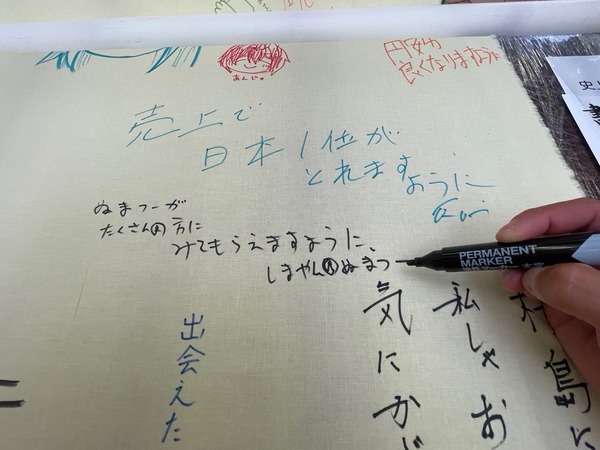 あんじゅ
良くなりますように
売上で
日本1位が
とれます
ように
ぬまつーが
たくさんの方に
みてもらえますように、
しまやん@ぬまつー
PERMANENT
MARKER
出会えた
気にかじ
私しゃお
村島に
史上